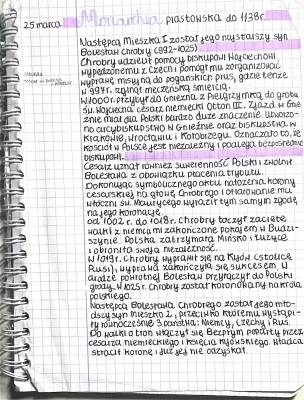 25 marca Monarchia piastowska do 1138r.
Następcą Mieszka I został jego najstarszy syn
Bolesław Chrobry (992-1025)
Chrobry udzielił pomocy biskupowi Wojciechowi
wypędzonemu z Czech i pomógł mu zorganizować
wyprawę misyjną do pogańskich prus, gdzie tenże
w 997r. zginął męczeńską śmiercią.
W 1000r przybył do Gniezna z pielgrzymką do grobu
św. Wojciecha cesarz niemiecki Otton III. Zjazd w Gnie-
źnie miał dla Polski bardzo duże znaczenie. Utworzo-
no arcybiskupstwo w Gnieźnie oraz biskupstwa w
Krakowie, Wrocławiu i Kołobrzegu. Oznaczało to, że
kościół w Polsce jest niezależny i podlega bezpośrednio
biskupowi.
Cesarz uznał również suwerenność Polski i zwolnił
Bolesława z obowiązku płacenia trybutu.
Dokonując symbolicznego aktu nałożenia korony
cesarskiej na głowę Chrobrego i ofiarowaniu mu
włóczni św. Maurycego wyraził tym samym zgodę
na jego koronację.
od 1002 r. do 1018r. Chrobry toczył zacięte
walki z niemcami zakończone pokojem w Budzi-
szynie. Polska zatrzymała Milsko i Łużyce
i obroniła swoją niezależność.
W 1018r. Chrobry wyprawił się na Kijów (stolicę
Rusi), wyprawa zakończyła się sukcesem. W
drodze powrotnej Bolesław przyłączył do Polski
grody. W 1025r. Chrobry został koronowany na króla
polskiego.
Następcą Bolesława Chrobrego został jego mło-
dszy syn Mieszko 2, przeciwko któremu wystąpi-
ły równocześnie 3 państwa: Niemcy, Czechy i Rus.
Do walki o tron włączył się Bezprym poparty przez
cesarza niemieckiego i księcia kijowskiego. Władca
stracił koronę i już jej nie odzyskał.